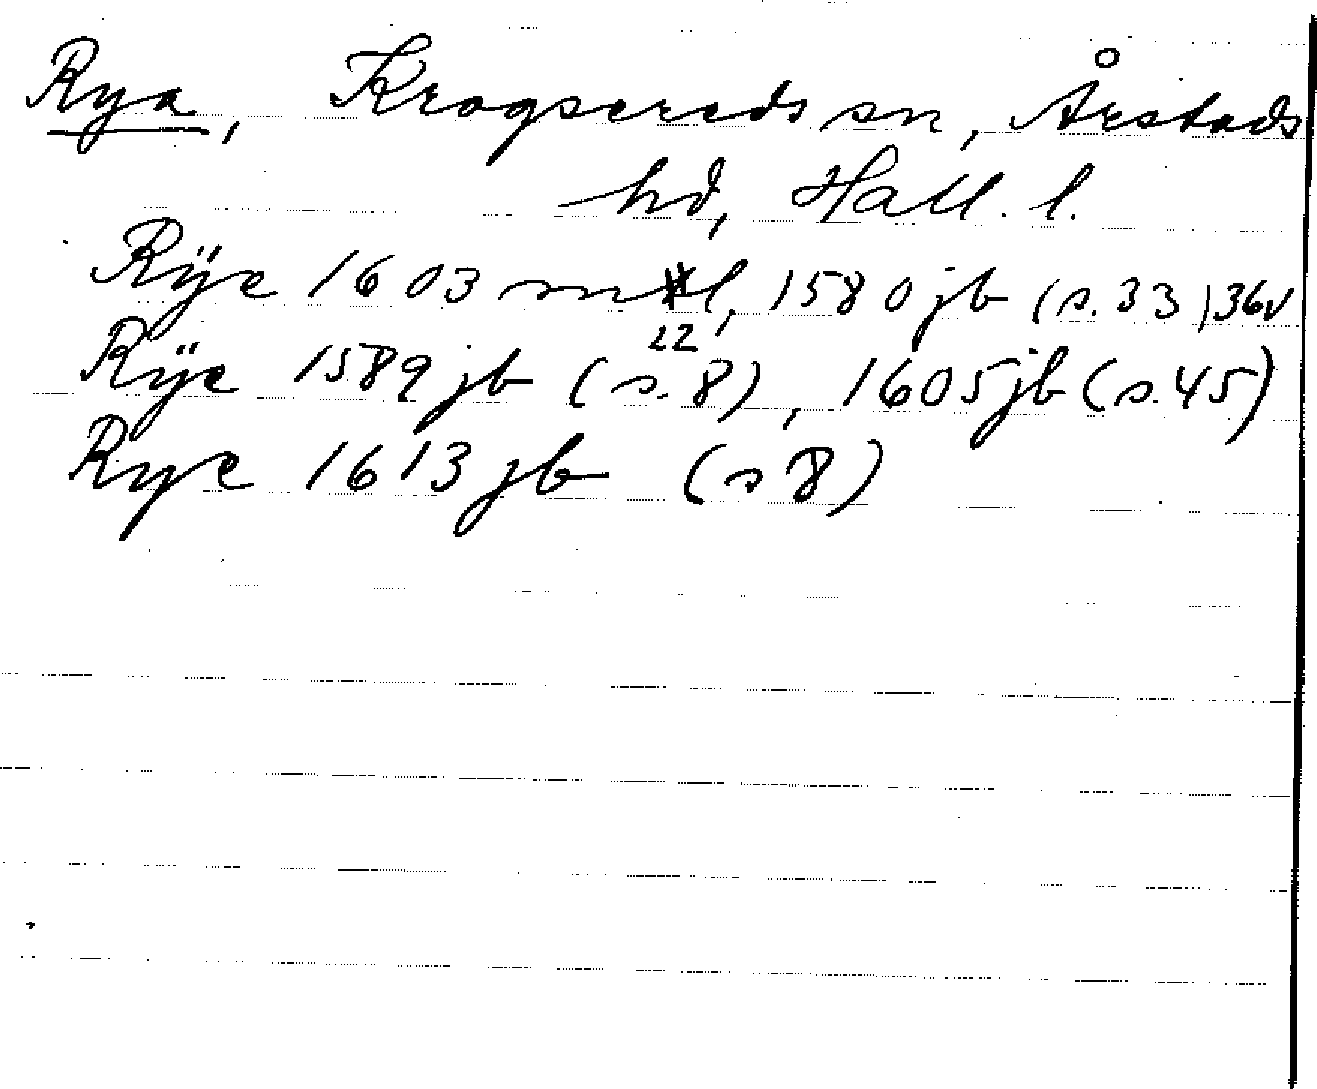 Rya, Krogsereds sn, Årstads
hd, Hall. l.
Rÿe 1603 mtl, 1580 jb (s. 33) 36v
22
Rÿe 1589 jb (s. 8), 1605 jb (s. 45)
Rye 1613 jb (s 8)